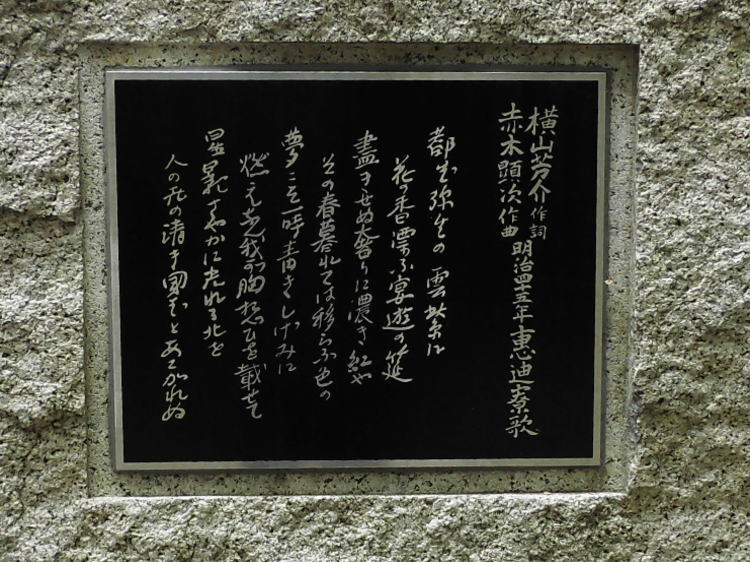 横山芳介作詞
赤木顕次作曲 明治四十五年恵迪寮歌
都ぞ弥生の 雲紫に
花の香漂ふ宴遊の筵
盡きせぬ奢りに濃き紅や
その春暮れては移らふ色の
夢こそ一時青きしげみに
燃えなん我が胸想ひを載せて
星影さやかに光れる北を
人の世の清き國ぞとあこがれぬ